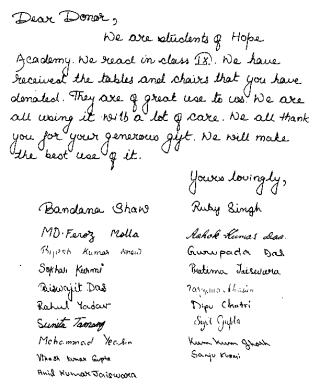 Dear Donor,
We are students of Hope
Academy. We read in class IX. We have
received the tables and chairs that you have
donated. They are of great use to us. We are
all using it with a lot of care. We all thank
you for your generous gift. We will make
the best use of it.
Yours lovingly,
Bandana Shaw Ruby Singh
MD. Feroz Molla Ashok Kumar Das.
Kumar Gurupada Das
Pratima Jaiswara
Biswajit Das
Rahul Yadav Dipu Chatri
Sunita Tamang Sujit Gupta
Mohammad Yeasin Kum Kum Ghosh
Vikash Kumar Gupta Sanju
Anil Kumar Jaiswara